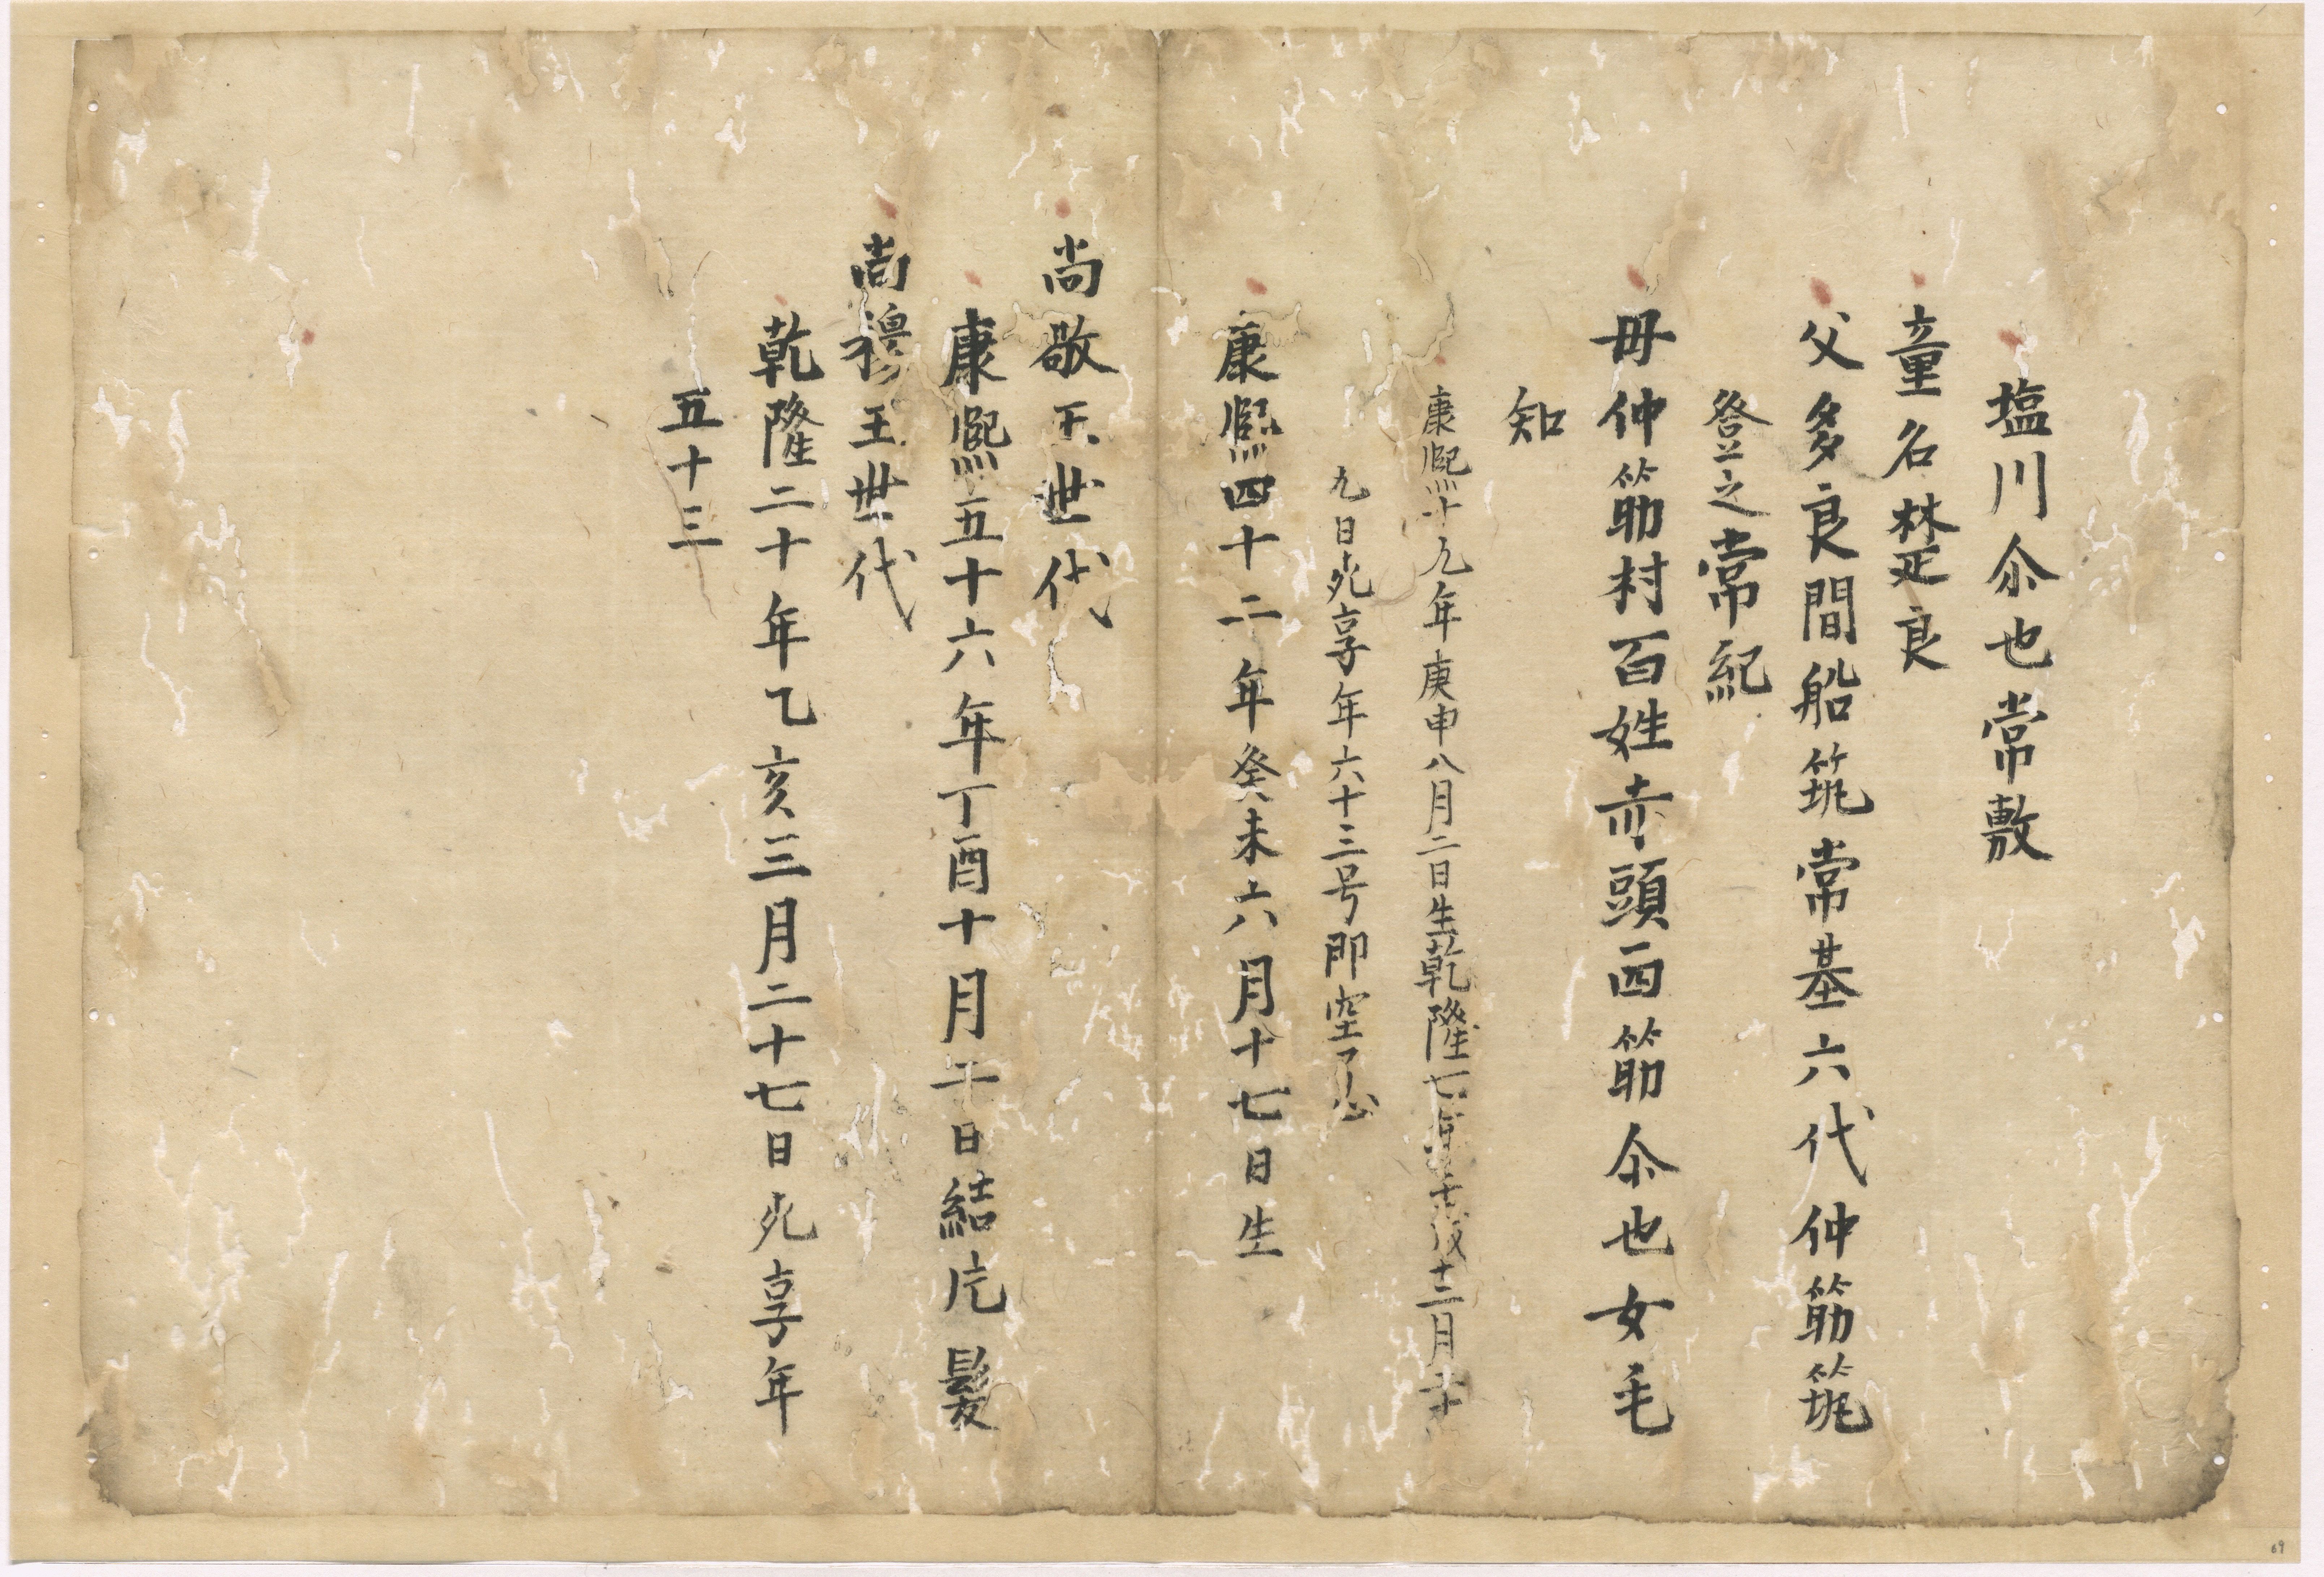 塩川尒也常敷
童名樊良
父多良間船筑常基六代仲筋筑
登之常紀
毋仲筋村百姓赤頭西筋尒也女毛
知
康熈十九年庚申八月二日生乾隆七年壬戌十二月十
九日死享年六十三号即空了心
康熈四十二年癸未六月十七日生
尚敬王世代
康熈五十六年丁酉十月 日結片髪
尚穆王世代
乾隆二十年乙亥三月二十七日死享年
五十三
69